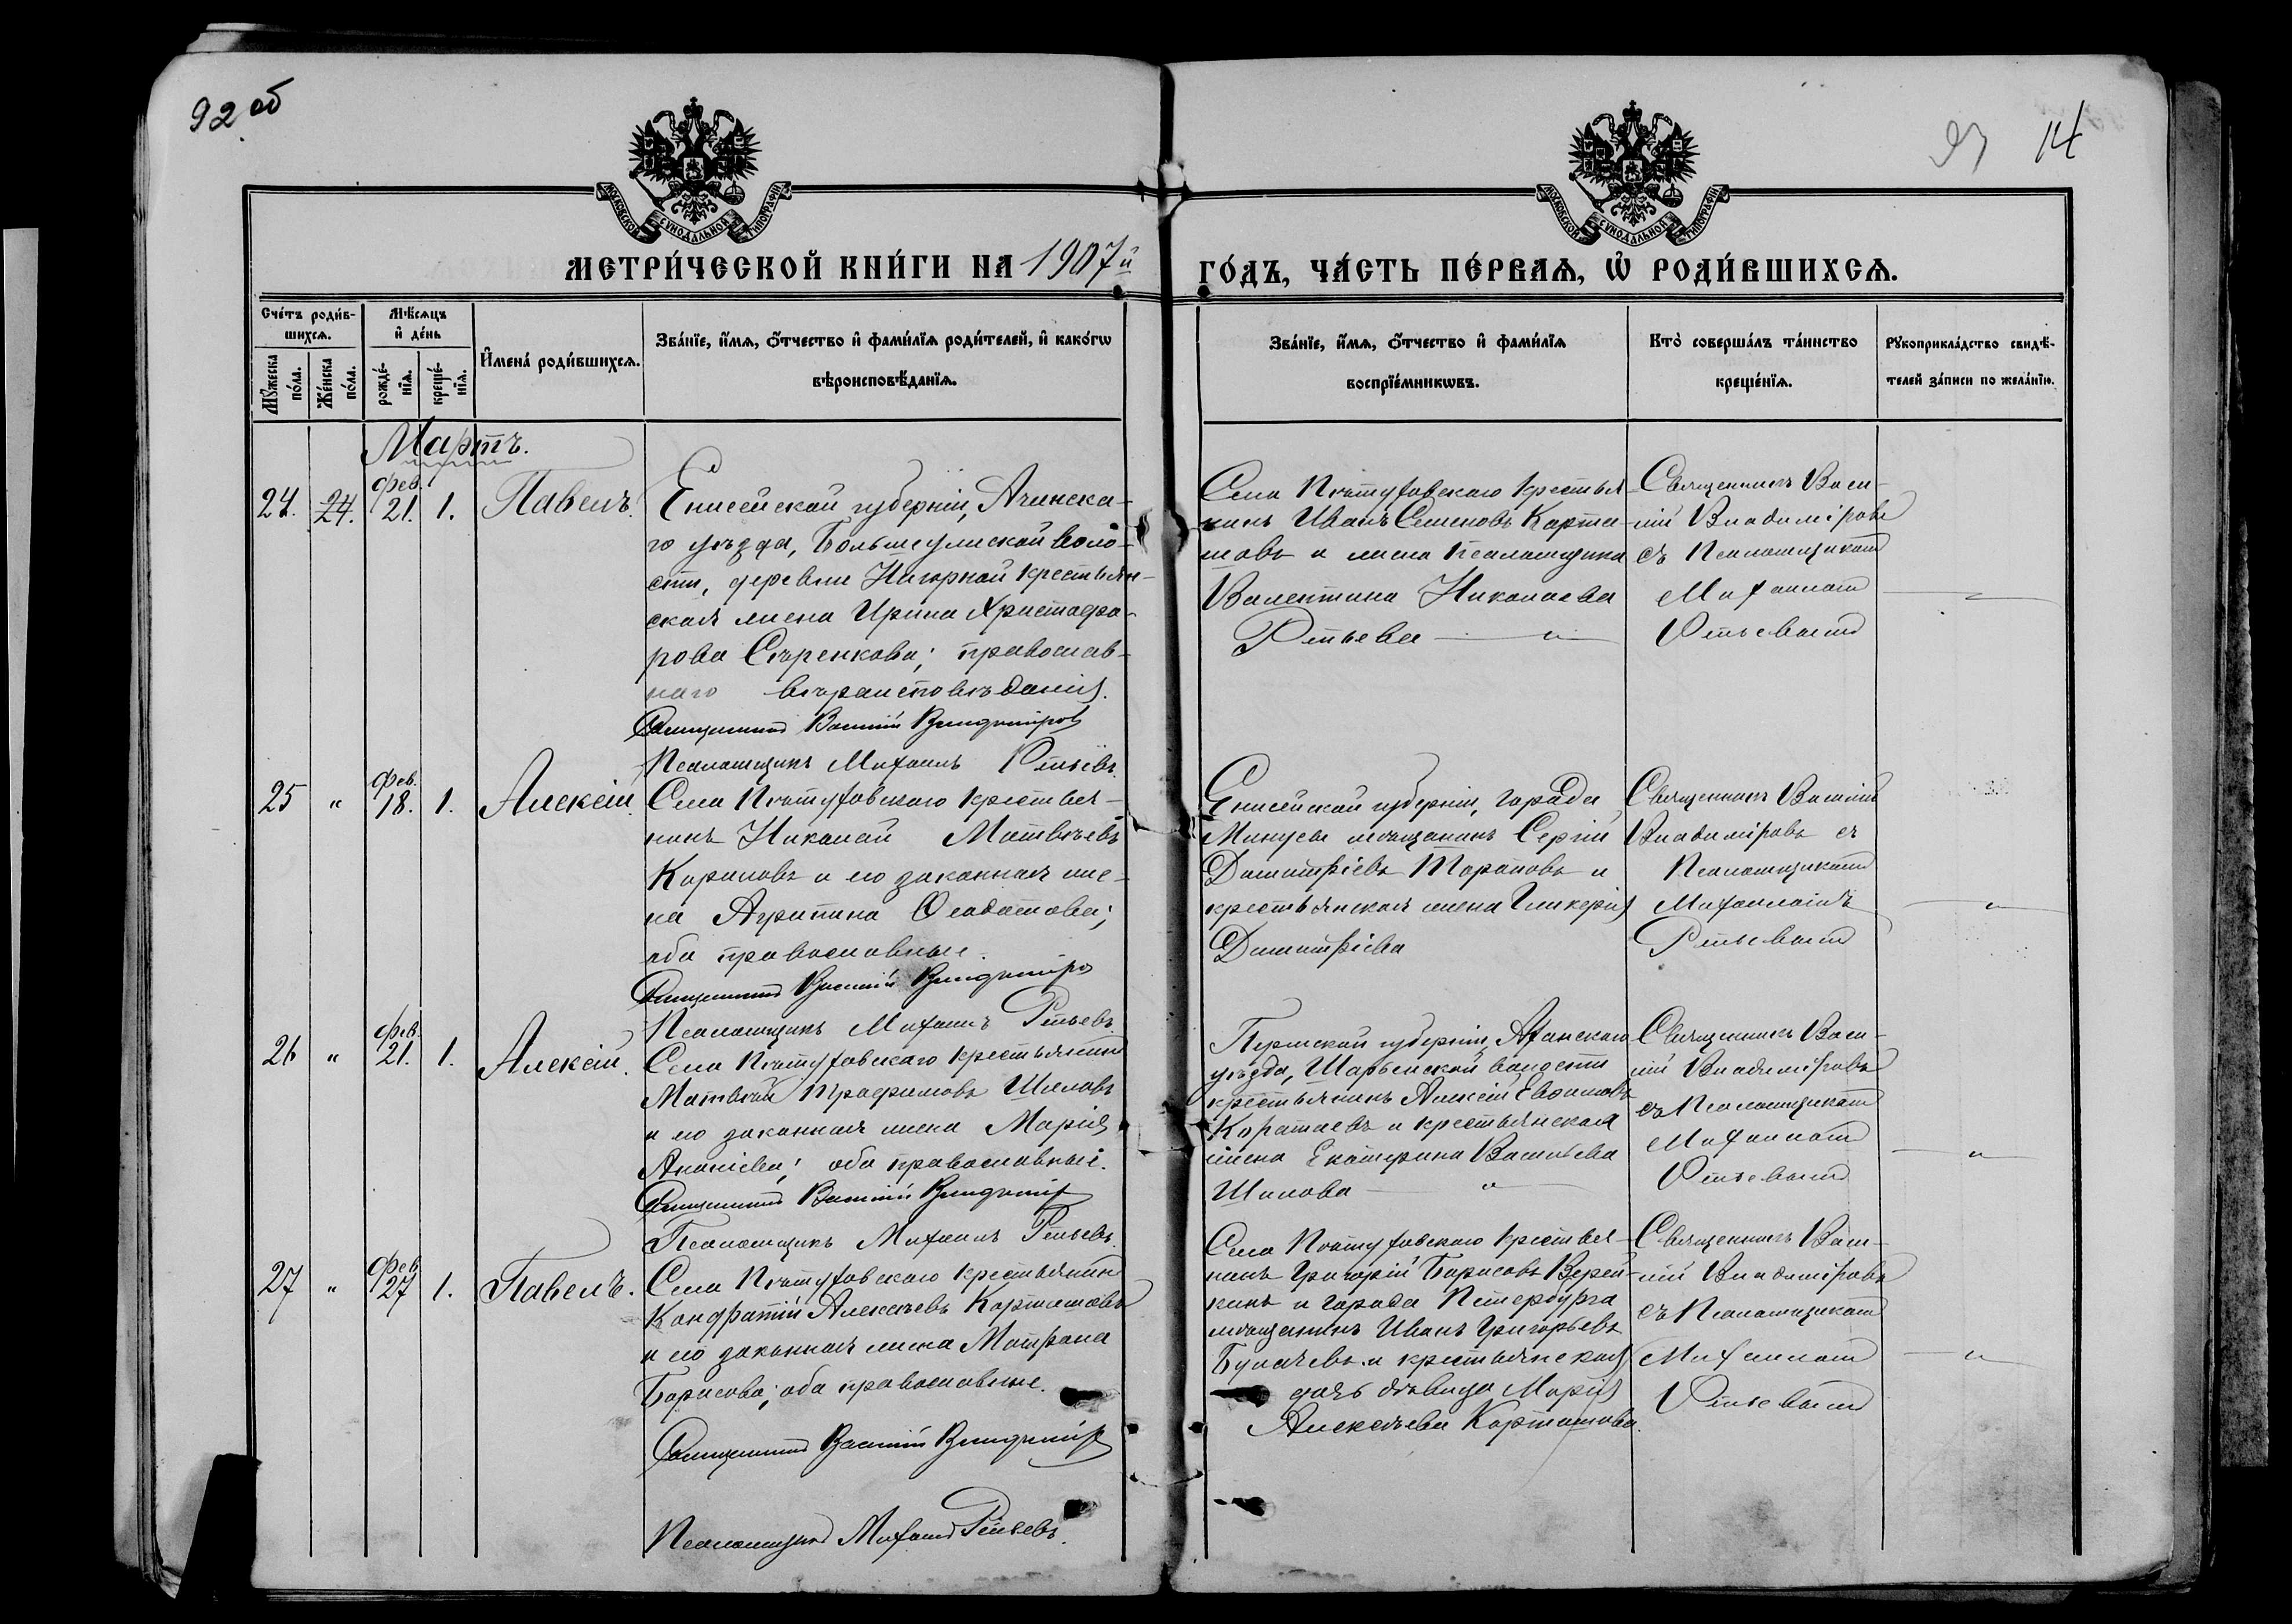 92 об
93 14
МОСКОВСКОЙ СУНОДАЛЬНОЙ ТИПОГРАФІИ
МОСКОВСКОЙ СУНОДАЛЬНОЙ ТИПОГРАФІИ
МЕТРИ́ЧЕСКОЙ КНИ́ГИ НА 1907й ГО́ДЪ, ЧА́СТЬ ПЕ́РВАѦ, Ѡ҆ РОДИ́ВШИХСѦ.
Сче́тъ роди́в-
шихсѧ.
Мꙋ́жеска
по́ла.
Же́нска
по́ла.
Мѣ́сѧцъ
и҆ де́нь
рожде́-
нїѧ.
креще́-
нїѧ.
И҆мена̀ роди́вшихсѧ.
Зва́нїе, и҆́мѧ, ѻ҆́тчество и҆ фами́лїѧ роди́телей, и҆ како́гѡ
вѣроисповѣ́данїѧ.
Зва́нїе, и҆́мѧ, ѻ҆́тчество и҆ фами́лїѧ
воспрїе́мникѡвъ.
Кто̀ соверша́лъ та́инство
креще́нїѧ.
Рꙋкоприкла́дство свидѣ́-
телей за́писи по жела́нїю.
Мартъ.
24. 24. Фев. 21. 1. Павелъ.
Енисейской губерніи, Ачинска-
го уѣзда, Больше улуйской воло-
сти, деревни Нагорной крестьян-
ская жена Ирина Христофо-
рова православ-
наго вѣроисповѣданія.
Священникъ Василій Владиміровъ
Псаломщикъ Михаилъ Рѣпьевъ.
Села крестья-
нинъ Иванъ Семеновъ Карта-
шовъ и жена псаломщика
Валентина Николаева
Рѣпьева — „ —
Священникъ Васи-
лій Владиміровъ
съ Псаломщикомъ
Михаиломъ
Рѣпьевымъ
— „ —
25 „ Фев. 18. 1. Алексій.
Села крестья-
нинъ Николай Матвѣевъ
и его законная же-
на Агрипина Ѳеодотова;
оба православные.
Священникъ Василій Владиміровъ
Псаломщикъ Михаилъ Рѣпьевъ.
Енисейской губерніи, города
мѣщанинъ Сергій
Димитріевъ и
крестьянская жена Гликерія
Димитріева
Священникъ Василій
Владиміровъ съ
Псаломщикомъ
Михаиломъ
Рѣпьевымъ
— „ —
26 „ Фев. 21. 1. Алексій.
Села крестьянинъ
Матвѣй Трофимовъ Шиловъ
и его законная жена Марія
Ананіева; оба православные.
Священникъ Василій Владиміровъ
Псаломщикъ Михаилъ Рѣпьевъ.
Пермской губерніи,
уѣзда, волости
крестьянинъ Алексій Евѳимовъ
и крестьянская
жена Екатерина Васильева
Шилова — „ —
Священникъ Васи-
лій Владиміровъ
съ Псаломщикомъ
Михаиломъ
Рѣпьевымъ
— „ —
27 „ Фев. 27 1. Павелъ.
Села крестьянинъ
Кондратій Алексѣевъ Карташовъ
и его законная жена Матрона
Борисова; оба православные.
Священникъ Василій Владиміровъ
Псаломщикъ Михаилъ Рѣпьевъ.
Села крестья-
нинъ Григорій Борисовъ
и города Петербурга
мѣщанинъ Иванъ Григорьевъ
и крестьянская
дочь дѣвица Марія
Алексѣева Карташова.
Священникъ Васи-
лій Владиміровъ
съ Псаломщикомъ
Михаиломъ
Рѣпьевымъ
— „ —